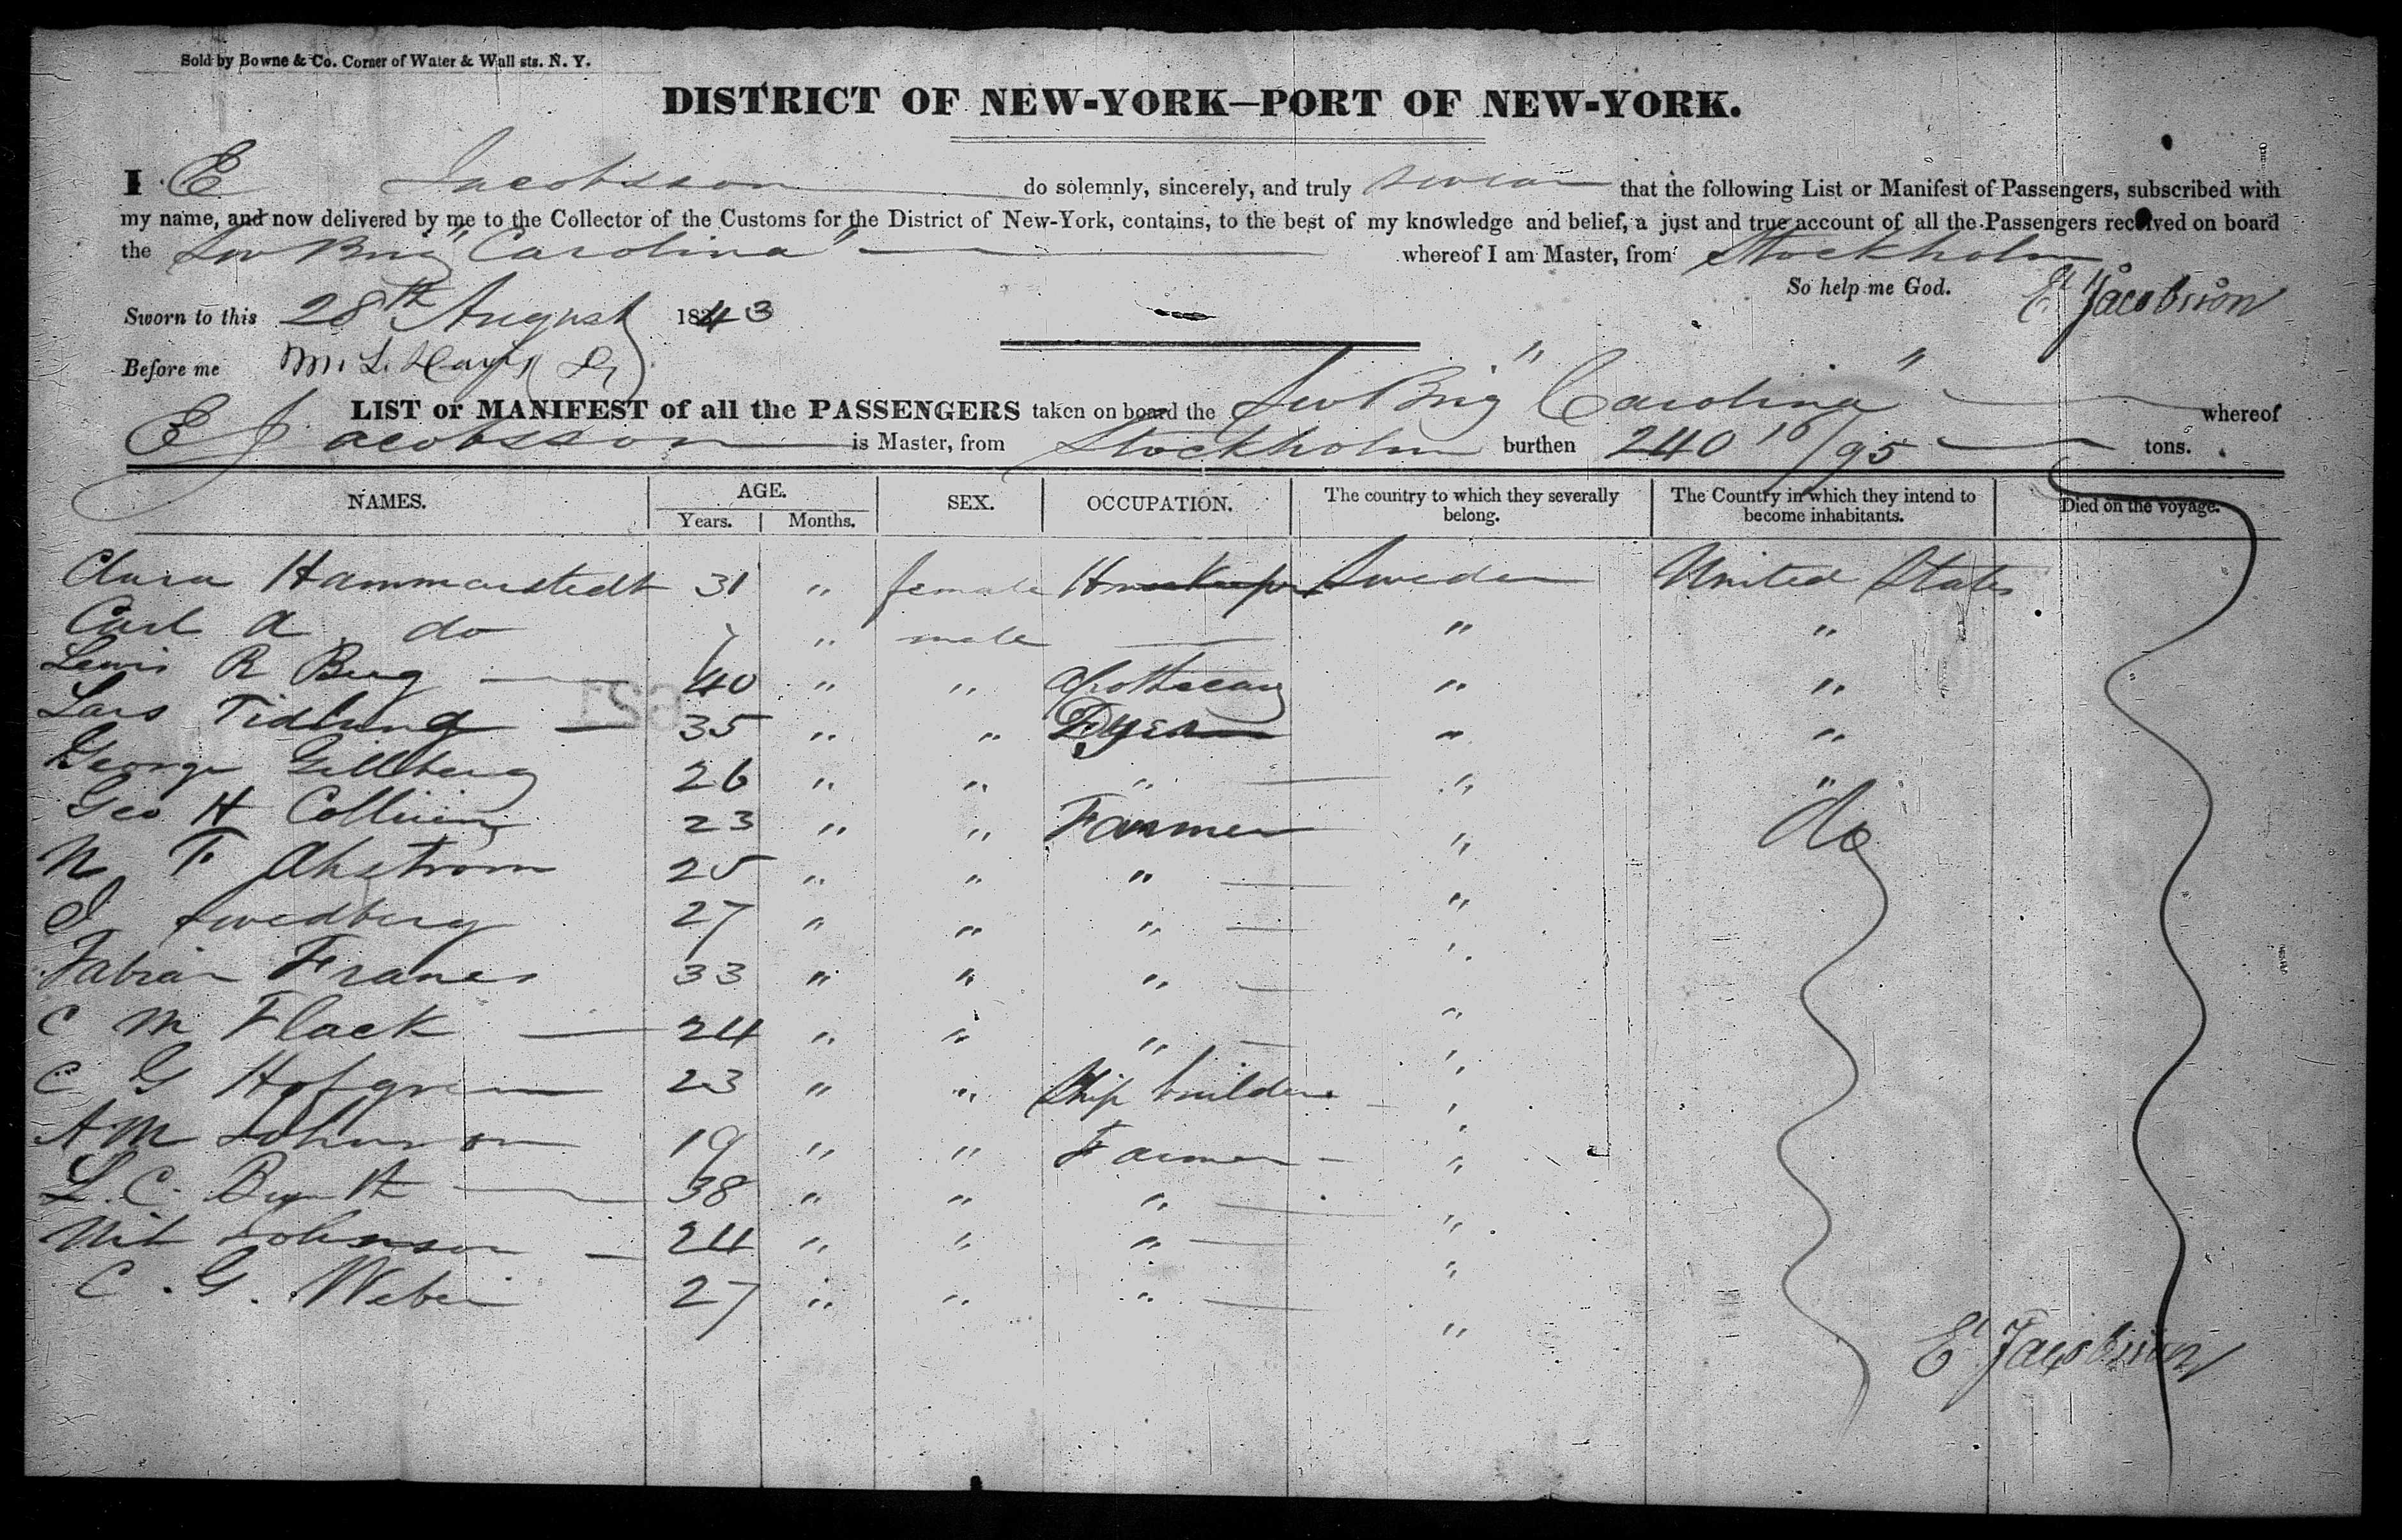 Sold by Bowne & Co. Corner of Water & Wall sts. N. Y.
DISTRICT OF NEW-YORK—PORT OF NEW-YORK.
I E Jacobsson do solemnly, sincerely, and truly swear that the following List or Manifest of Passengers, subscribed with
my name, and now delivered by me to the Collector of the Customs for the District of New-York, contains, to the best of my knowledge and belief, a just and true account of all the Passengers received on board
the Sw Brig "Carolina" whereof I am Master, from Stockholm
So help me God. E Jacobsson
Sworn to this 28th August 1843
Before me M. L.
LIST or MANIFEST of all the PASSENGERS taken on board the Sw Brig "Carolina" whereof
E Jacobsson is Master, from Stockholm burthen 240 16/95 tons.
NAMES. AGE. SEX. OCCUPATION. The country to which they severally belong. The Country in which they intend to become inhabitants. Died on the voyage.
Years. Months.
Clara Hammarstedt 31 " female Housekeeper Sweden United States
Carl A do 7 " male — " "
Lewis R Berg 40 " " Apothecary " "
Lars Tidlund 35 " " Dyer " "
George Gillberg 26 " " " " "
Geo H 23 " " Farmer " do
N F Ahstrom 25 " " " "
J Swedberg 27 " " " "
Fabian Franes 33 " " " "
C M Flack 24 " " " "
C G Hofgren 23 " " Ship builder "
A M Johnson 19 " " Farmer "
L. C. 38 " " " "
Johnson 24 " " " "
C. G. Weber 27 " " " "
E Jacobsson